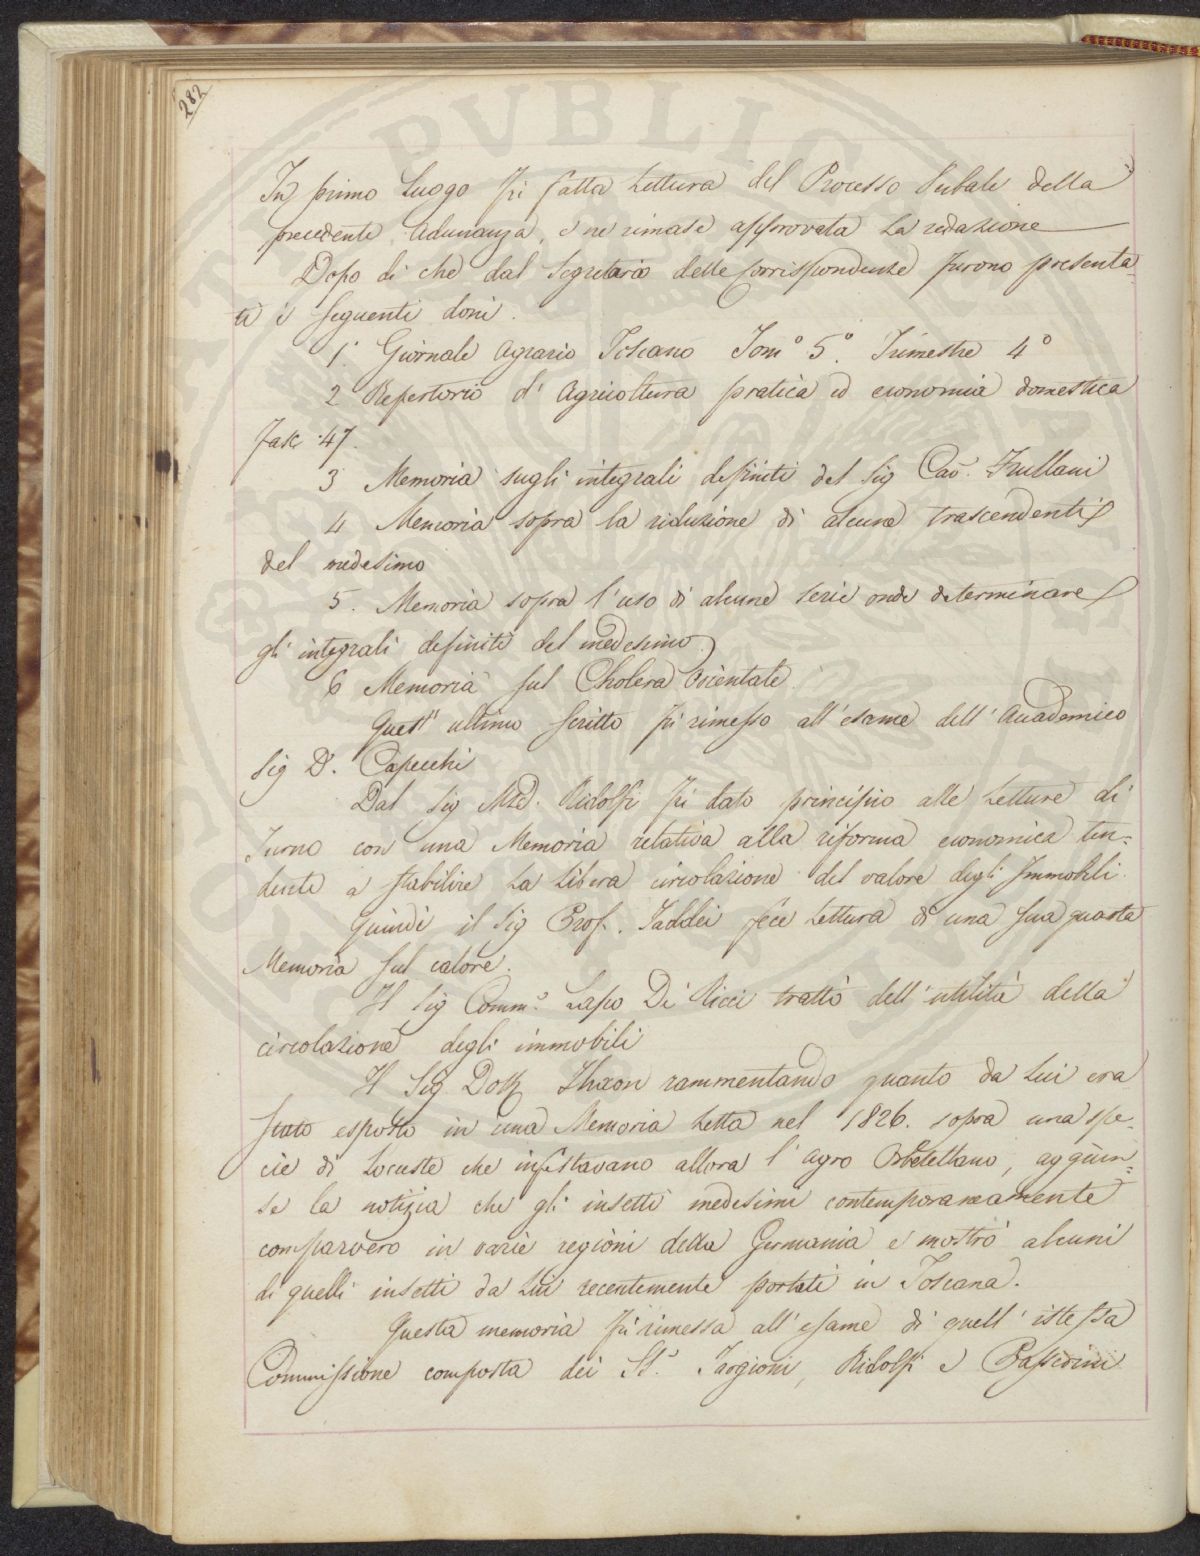 282
In primo Luogo fù fatta Lettura del Processo Verbale della
precedente Adunanza, e ne rimase approvata La redazione
Dopo di che dal Segretario delle Corrispondenze furono presenta-
ti i seguenti doni.
1. Giornale Agrario Toscano Tom.º 5.º Trimestre 4º
2 Repertorio d'Agricoltura pratica ed economia domestica
Fasc. 47.
3 Memoria sugli integrali definiti del Sig Cav. Frullani
4 Memoria sopra la riduzione di alcune trascendenti
del medesimo
5. Memoria sopra l'uso di alcune serie onde determinare
gli integrali definiti del medesimo
6 Memoria sul Cholera Orientale.
Quest'ultimo scritto fù rimesso all'esame dell'Accademico
Sig D. Capecchi
Dal Sig Mse. Ridolfi fù dato principio alle Letture di
Turno con una Memoria relativa alla riforma economica ten-
dente a stabilire La Libera circolazione del valore degli Immobili.
Quindi il Sig Prof. Taddei fece Lettura di una sua quarta
Memoria sul calore.
Il Sig Comm.e Lapo De' Ricci trattò dell'utilità della
circolazione degli immobili
Il Sig Dott Thaon rammentando quanto da Lui era
stato esposto in una Memoria Letta nel 1826. sopra una spe-
cie di Locuste che infestavano allora l'Agro Orbetellano, aggiun-
se la notizia che gli insetti medesimi contemporaneamente
comparvero in varie regioni della Germania e mostrò alcuni
di quelli insetti da Lui recentemente portati in Toscana.
Questa memoria fù rimessa all'esame di quell'istessa
Commissione composta dei SS.i Targioni, Ridolfi e Passerini